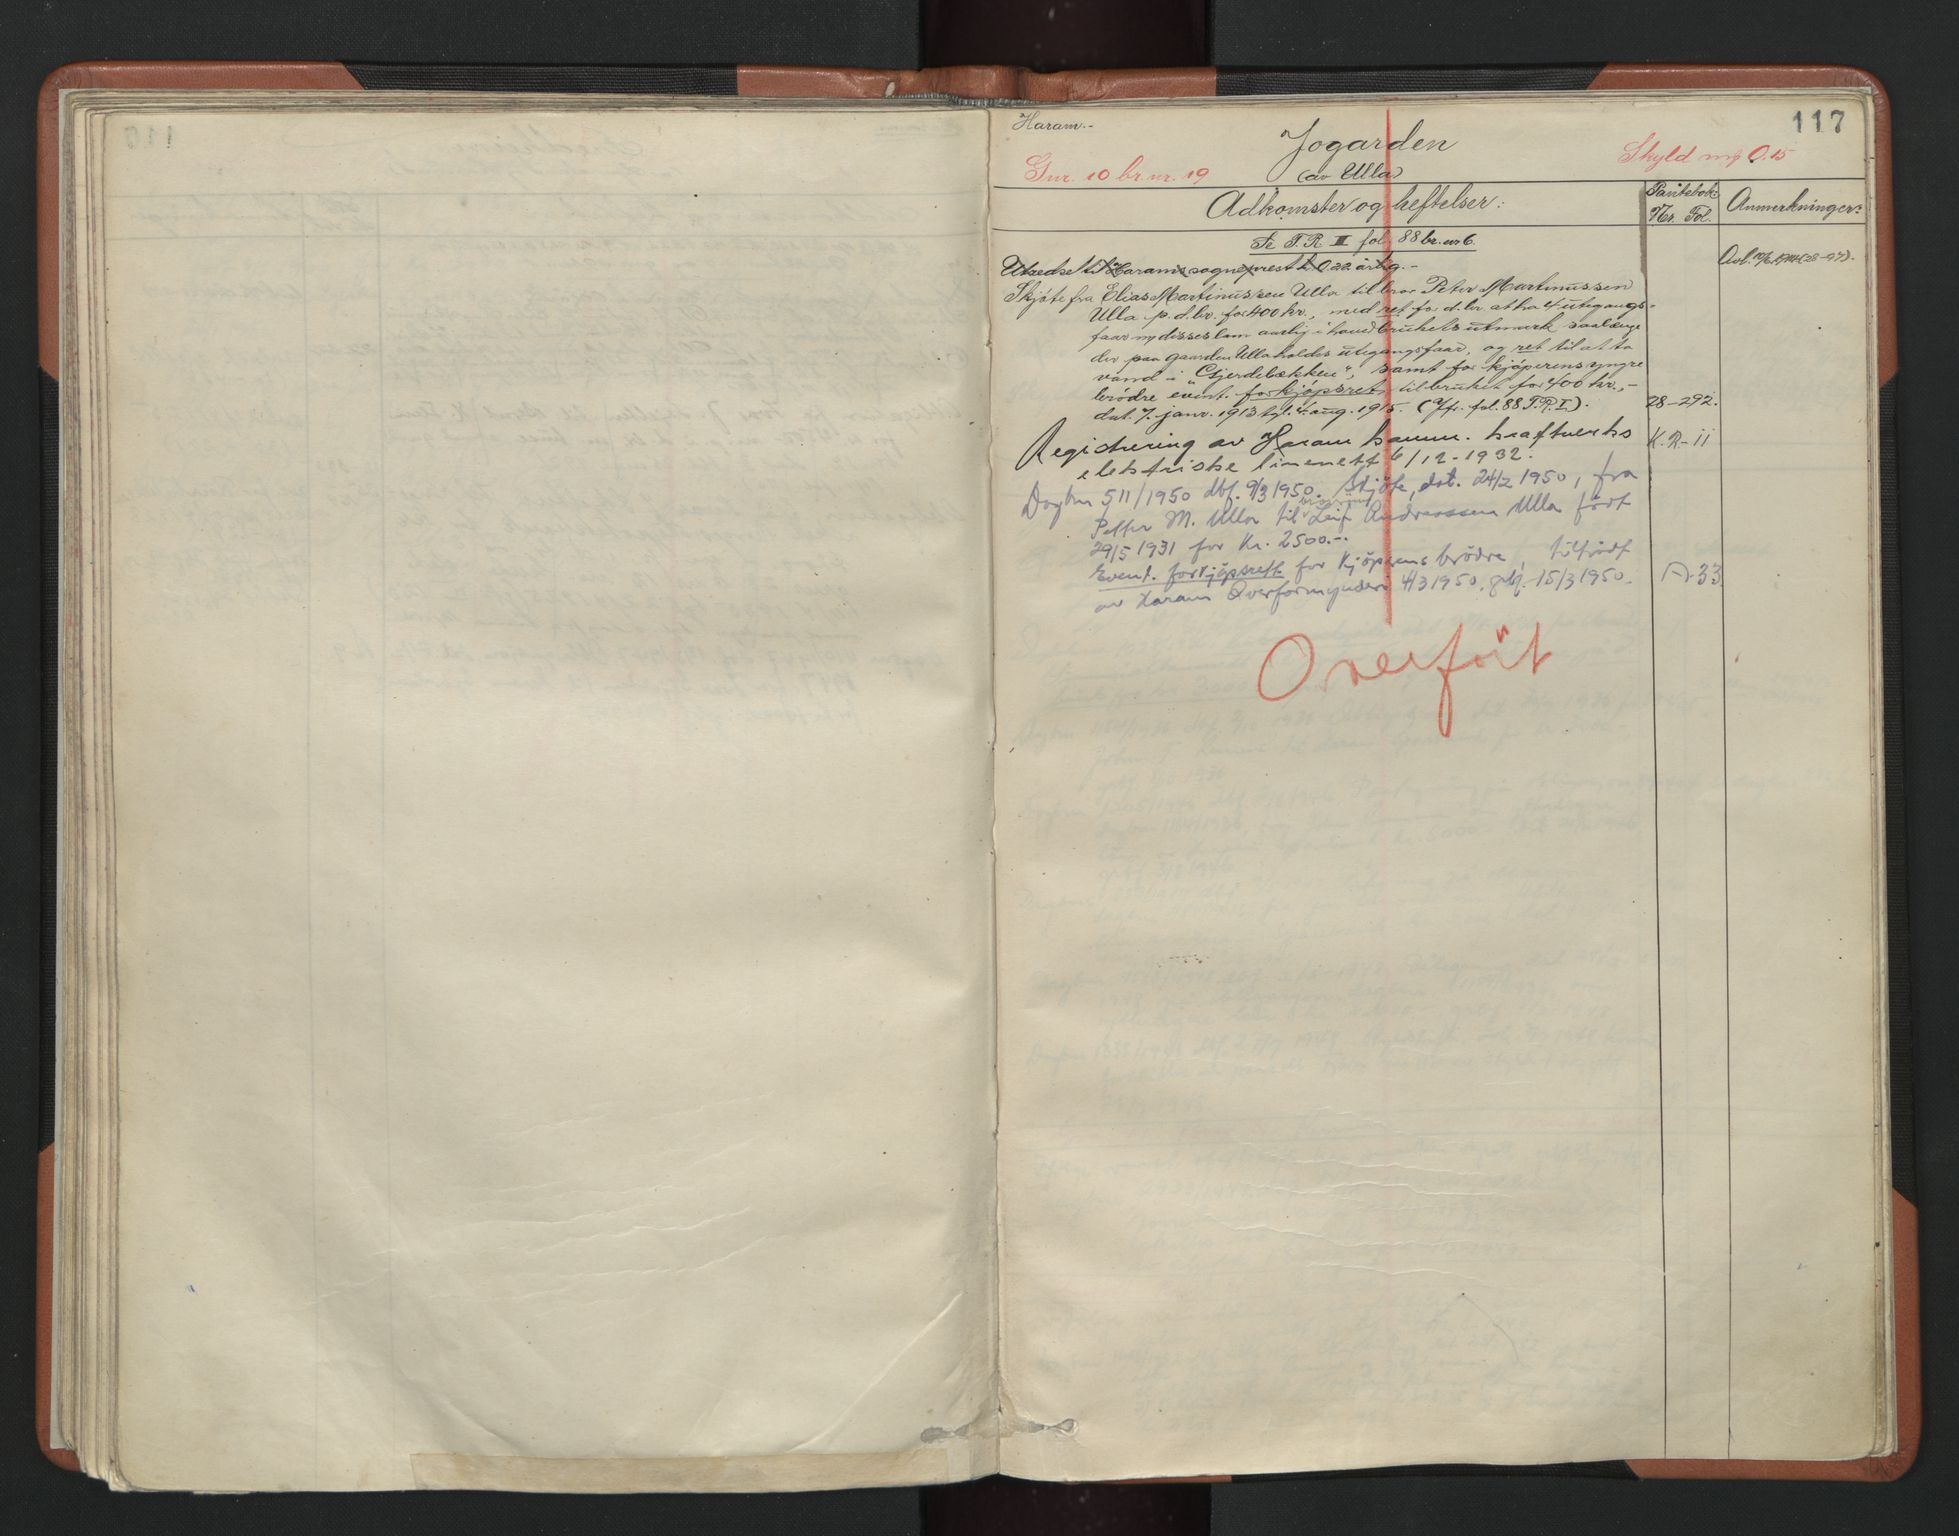 Haram.-
117
Jogarden
(av Ulla)
Gnr. 10 br. nr. 19
Skyld mk 0.15
Adkomster og heftelser:
Pantebok:
Nr. Fol.
Anmerkninger:
Se P.R. II fol. 88 br. nr 6.
Utredsel til Harams sogneprest kr 0.22 årlig.-
Avl. 1914 (28-97).
Skjöte fra Elias Martinussen Ulla til bror Peter Martinussen
Ulla p. d. br. for 400 kr., med ret for d. br. at ha 4 utegangs-
faar m/ disses lam aarlig i hovedbrukets utmark saalænge
der paa gaarden Ulla holdes utegangsfaar, og ret til at ta
vand i "Gjerdebækken", samt for kjöperens yngre
brödre event. forkjöpsret til bruket for 400 kr.,-
dat. 7. janv. 1913 tgl. 4. aug. 1915. (Jfr. fol. 88 P.R. I).
28-292.
Registrering av Haram komm. kraftverks
K.R-11
elektriske linenett 6/12-1932.
Dagbnr 511/1950 dbf. 9/3 1950. Skjöte, dat. 24/2 1950, fra
Petter M. Ulla til brorsönn Leif Andreassen Ulla född
29/5 1931 for Kr. 2500.-.
Event. forkjöpsrett for kjöperens brödre, tiltrådt
av Haram Overformynderi 4/3 1950. gbf. 15/3 1950.
A-33
Overfört